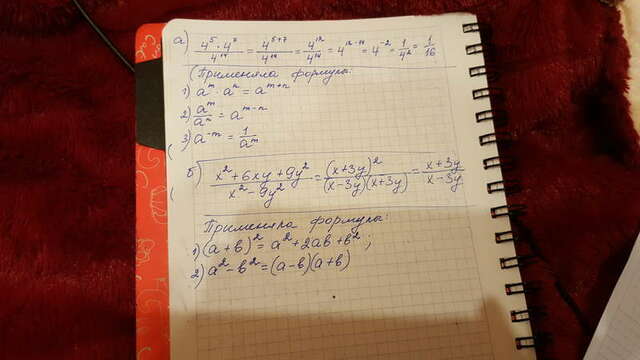 а) 4⁵·4⁷/4¹⁴ = 4⁵⁺⁷/4¹⁴ = 4¹²/4¹⁴ = 4¹²⁻¹⁴ = 4⁻² = 1/4² = 1/16
(Применяла формулы:
1) aᵐ·aⁿ = aᵐ⁺ⁿ
2) aᵐ/aⁿ = aᵐ⁻ⁿ
3) a⁻ᵐ = 1/aᵐ )
б) x²+6xy+9y²/x²-9y² = (x+3y)²/(x-3y)(x+3y) = x+3y/x-3y
( Применяла формулы:
1) (a+b)² = a²+2ab+b²;
2) a²-b² = (a-b)(a+b)